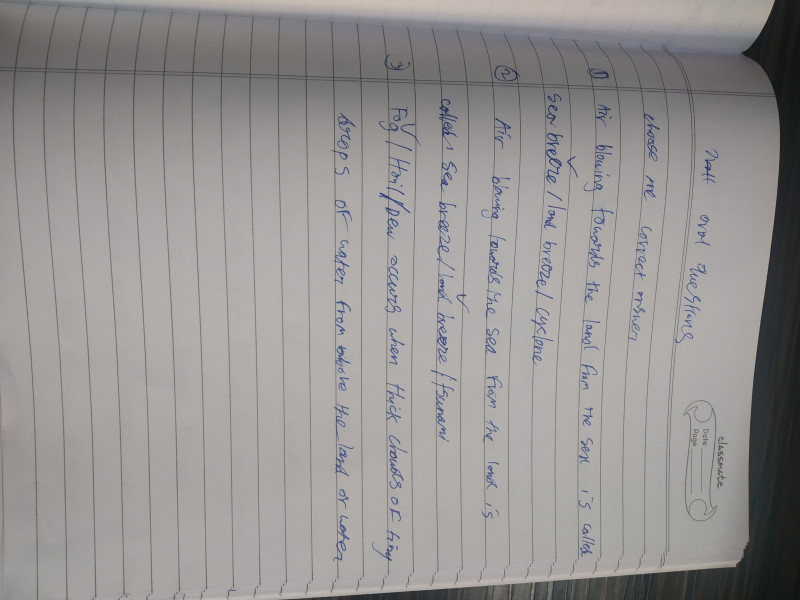 classmate
Date
Page
oral questions
choose the correct answer
① Air blowing towards the land from the sea is called
Sea breeze / land breeze / cyclone
② Air blowing towards the sea from the land is
called, sea breeze / land breeze / tsunami
③ Fog / Hail / Dew occurs when thick clouds of tiny
drops of water from above the land or water